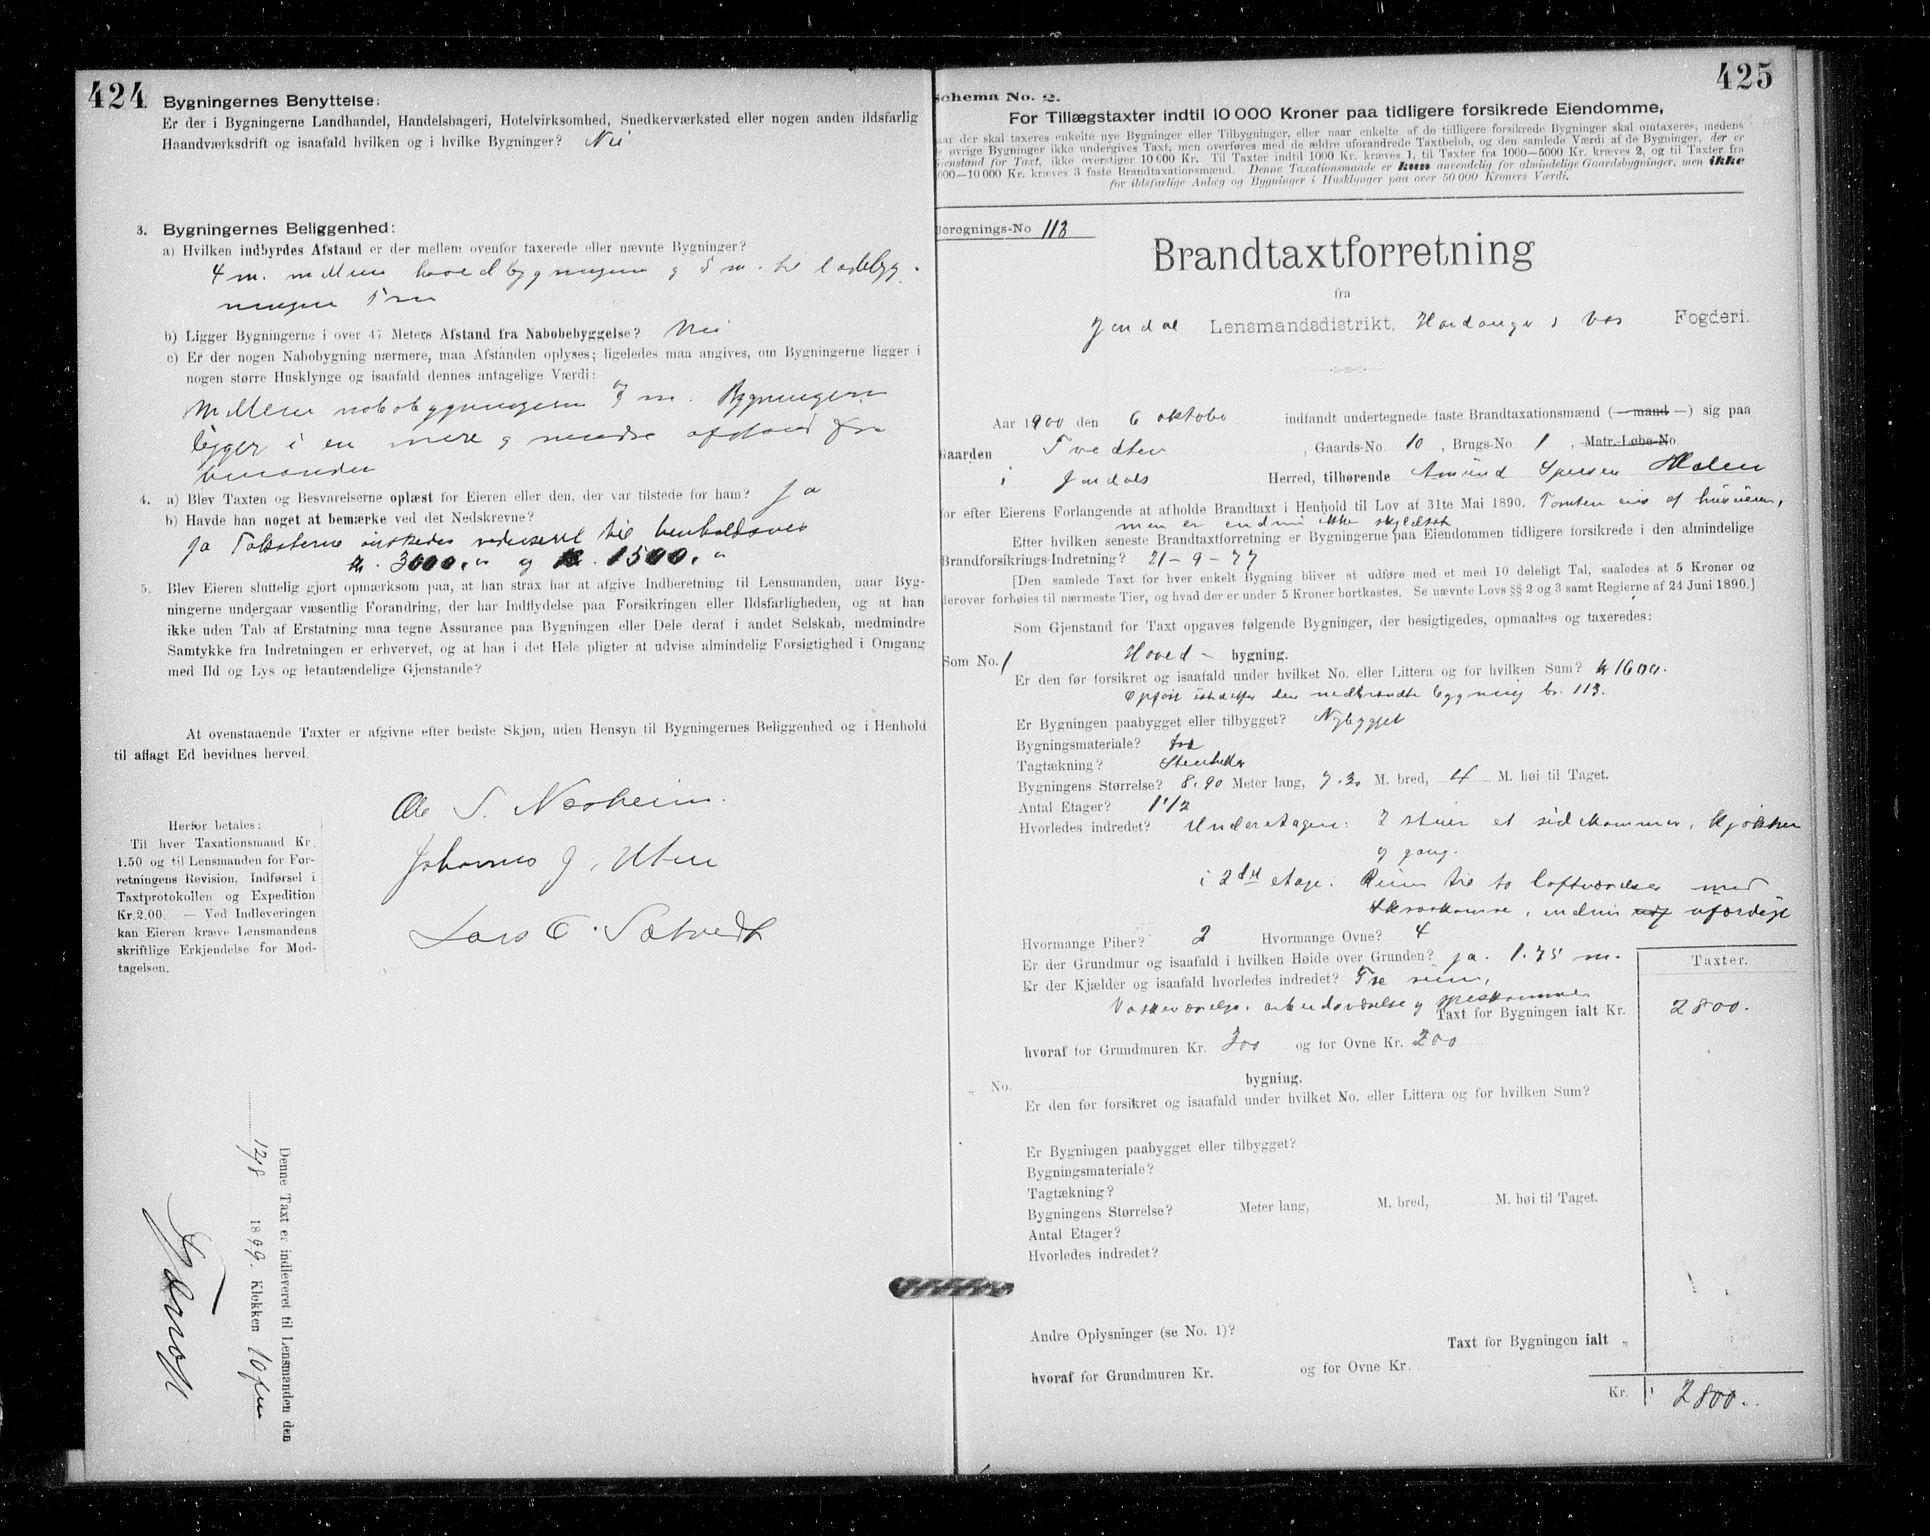 424
Bygningernes Benyttelse:
Er der i Bygningerne Landhandel, Handelsbageri, Hotelvirksomhed, Snedkerværksted eller nogen anden ildsfarlig
Haandværksdrift og isaafald hvilken og i hvilke Bygninger? Nei
3. Bygningernes Beliggenhed:
a) Hvilken indbyrdes Afstand er der mellem ovenfor taxerede eller nævnte Bygninger?
4 m. mellem hovedbygningene og 5 m. til ladebyg-
ningen 5 m
b) Ligger Bygningerne i over 47 Meters Afstand fra Nabobebyggelse? Nei
c) Er der nogen Nabobygning nærmere, maa Afstanden oplyses; ligeledes maa angives, om Bygningerne ligger i
nogen større Husklynge og isaafald dennes antagelige Værdi:
Mellem nabobygningerne 7 m. Bygningerne
ligger i en mere og mindre afstand fra
hinanden
4. a) Blev Taxten og Besvarelserne oplæst for Eieren eller den, der var tilstede for ham? Ja
b) Havde han noget at bemærke ved det Nedskrevne?
Ja Taksterne ønskedes reduseret til henholdsvis
kr. 3000,- og kr. 1500,-
5. Blev Eieren sluttelig gjort opmærksom paa, at han strax har at afgive Indberetning til Lensmanden, naar Byg-
ningerne undergaar væsentlig Forandring, der har Indflydelse paa Forsikringen eller Ildsfarligheden, og at han
ikke uden Tab af Erstatning maa tegne Assurance paa Bygningen eller Dele deraf i andet Selskab, medmindre
Samtykke fra Indretningen er erhvervet, og at han i det Hele pligter at udvise almindelig Forsigtighed i Omgang
med Ild og Lys og letantændelige Gjenstande?
At ovenstaaende Taxter er afgivne efter bedste Skjøn, uden Hensyn til Bygningernes Beliggenhed og i Henhold
til aflagt Ed bevidnes herved.
Ole S. Nesheim.
Johannes J. Utne
Lars O. Sætvedt
Herfor betales:
Til hver Taxationsmand Kr.
1.50 og til Lensmanden for For-
retningens Revision, Indførsel i
Taxtprotokollen og Expedition
Kr. 2.00. — Ved Indleveringen
kan Eieren kræve Lensmandens
skriftlige Erkjendelse for Mod-
tagelsen.
Denne Taxt er indleveret til Lensmanden den
12/8 1899. Klokken 10 fm
425
Schema No. 2.
For Tillægstaxter indtil 10 000 Kroner paa tidligere forsikrede Eiendomme,
aar der skal taxeres enkelte nye Bygninger eller Tilbygninger, eller naar enkelte af de tidligere forsikrede Bygninger skal omtaxeres, medens
e øvrige Bygninger ikke undergives Taxt, men overføres med de ældre uforandrede Taxtbeløb, og den samlede Værdi af de Bygninger, der er
Gjenstand for Taxt, ikke overstiger 10 000 Kr. Til Taxter indtil 1000 Kr. kræves 1, til Taxter fra 1000—5000 Kr. kræves 2, og til Taxter fra
000—10 000 Kr. kræves 3 faste Brandtaxationsmænd. Denne Taxationsmaade er kun anvendelig for almindelige Gaardsbygninger, men ikke
for ildsfarlige Anlæg og Bygninger i Husklynger paa over 50 000 Kroners Værdi.
Beregnings-No 113
Brandtaxtforretning
fra
Jondal Lensmandsdistrikt, Hardanger & Vos Fogderi.
Aar 1900 den 6 oktober indfandt undertegnede faste Brandtaxationsmænd (— mand —) sig paa
Gaarden Tvedten, Gaards-No. 10, Brugs-No. 1, Matr.-Løbe-No.
i Jondals Herred, tilhørende Amund Halen
for efter Eierens Forlangende at afholde Brandtaxt i Henhold til Lov af 31te Mai 1890. Tomten eies af huseieren,
men er endnu ikke skyldsat
Efter hvilken seneste Brandtaxtforretning er Bygningerne paa Eiendommen tidligere forsikrede i den almindelige
Brandforsikrings-Indretning? 21-9-77
[Den samlede Taxt for hver enkelt Bygning bliver at udføre med et med 10 deleligt Tal, saaledes at 5 Kroner og
derover forhøies til nærmeste Tier, og hvad der er under 5 Kroner bortkastes. Se nævnte Lovs §§ 2 og 3 samt Reglerne af 24 Juni 1890.]
Som Gjenstand for Taxt opgaves følgende Bygninger, der besigtigedes, opmaaltes og taxeredes:
Som No. 1 Hoved- bygning.
Er den før forsikret og isaafald under hvilket No. eller Littera og for hvilken Sum? kr 1600.
Opført istedetfor den nedbrændte bygning br. 113.
Er Bygningen paabygget eller tilbygget? Nybygget
Bygningsmateriale? træ
Tagtækning? Stenheller
Bygningens Størrelse? 8.90 Meter lang, 7.30 M. bred, 4 M. høi til Taget.
Antal Etager? 1 1/2
Hvorledes indredet? Underetagen: 2 stuer et sidekammer, kjøkken
og gang.
i 2den etage: Reum til to loftværelser med
, endnu uferdige
Hvormange Piber? 2 Hvormange Ovne? 4
Er der Grundmur og isaafald i hvilken Høide over Grunden? ja. 1.75 m.
Er der Kjælder og isaafald hvorledes indredet? Tre reum,
Vaskeværelse, arbeidsværelse og speiskammer
Taxter.
Taxt for Bygningen ialt Kr. 2800.
hvoraf for Grundmuren Kr. 300 og for Ovne Kr. 200
„ No. bygning.
Er den før forsikret og isaafald under hvilket No. eller Littera og for hvilken Sum?
Er Bygningen paabygget eller tilbygget?
Bygningsmateriale?
Tagtækning?
Bygningens Størrelse? Meter lang, M. bred, M. høi til Taget.
Antal Etager?
Hvorledes indredet?
Andre Oplysninger (se No. 1)?
Taxt for Bygningen ialt „
hvoraf for Grundmuren Kr. og for Ovne Kr.
Kr. 2800.